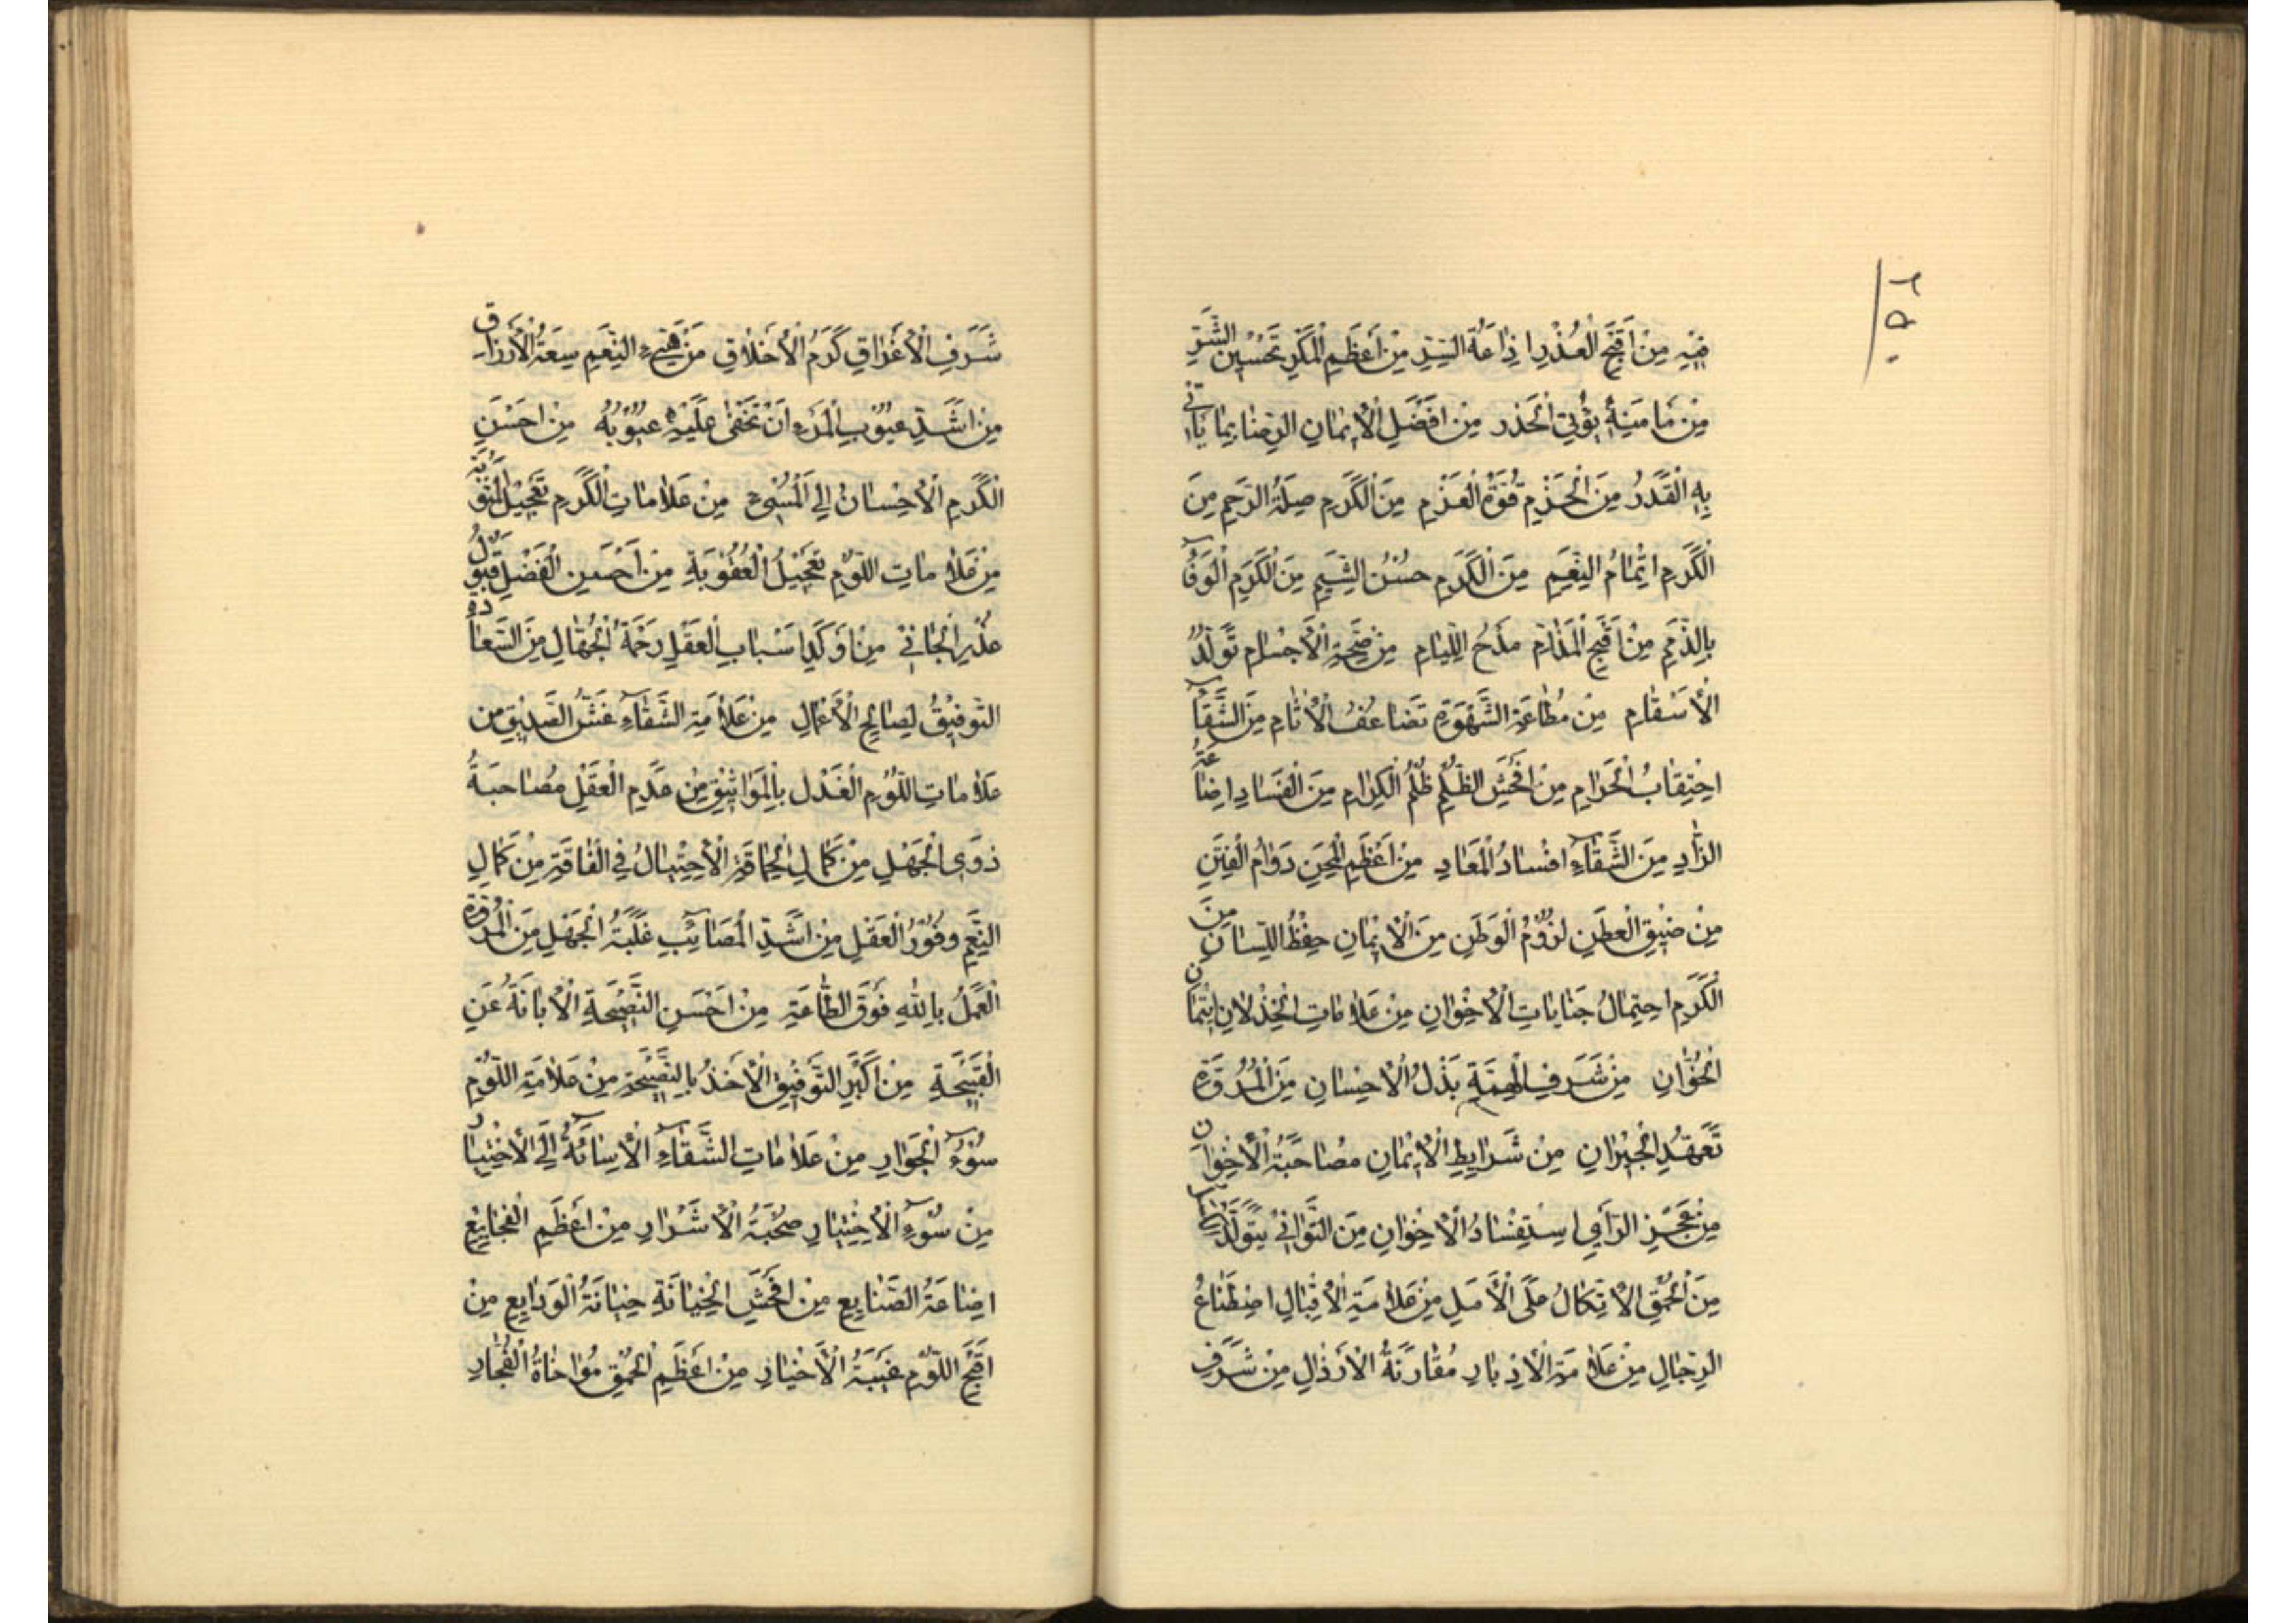 فِيْهِ مِنْ اَقْبَحِ الْعُذْرِ اِذَاعَةُ السِّرِّ مِنْ اَعْظَمِ الْمَكْرِ تَحْسِيْنُ الشَّرِّ
مِنْ مَامَنِهٖ يُؤْتِيَ الْحَذر مِنْ اَفْضَلِ الْاِيْمٰانِ الرِّضٰا بِمٰا يَأتِي
بِهِ الْقَدَرُ مِنَ الْحَزْمِ قُوَّةُ الْعَزْمِ مِنَ الْكَرَمِ صِلَةُ الرَّحِمِ مِنَ
الْكَرَمِ اِتْمٰامُ النِّعَمِ مِنَ الْكَرَمِ حُسْنُ الشِّيَمِ مِنَ الْكَرَمِ الْوَفٰآ
بِالذِّمَمِ مِنْ اَقْبَحِ الْمَذٰامِّ مَدْحُ اللِّئٰامِ مِنْ صِحَّةِ الْاَجْسٰامِ تَوَلُّدُ
الْاَسْقٰامِ مِنْ مُطٰاعَةِ الشَّهْوَةِ تَضٰاعُفُ الْاٰثٰامِ مِنَ الشَّقٰآ
احْتِقٰابُ الْحَرٰامِ مِنْ اَفْحَشِ الظُّلْمِ ظُلْمُ الْكِرٰامِ مِنَ الْفَسٰادِ اِضٰاعَةُ
الزّٰادِ مِنَ الشَّقٰآءِ اِفْسٰادُ الْمَعٰادِ مِنْ اَعْظَمِ الْمِحَنِ دَوٰامُ الْفِتَنِ
مِنْ ضِيْقِ الْعَطَنِ لُزُوْمُ الْوَطَنِ مِنَ الْاِيْمٰانِ حِفْظُ اللِّسٰانِ مِنَ
الْكَرَمِ احْتِمٰالُ جِنٰايٰاتِ الْاِخْوٰانِ مِنْ عَلاٰمٰاتِ الْخِذْلاٰنِ اِيْتِمٰان
الْخُوّٰانِ مِنْ شَرَفِ الْهِمَّةِ بَذْلُ الْاِحْسٰانِ مِنَ الْمُرُوَّةِ
تَعَهُّدُ الْجِيْرٰانِ مِنْ شَرٰايِطِ الْاِيْمٰانِ مُصٰاحَبَةُ الْاِخْوٰان
مِنْ عَجْزِ الرَّأيِ اسْتِفْسٰادُ الْاِخْوٰانِ مِنَ التَّوٰانِيْ يَتَوَلَّدُ
مِنَ الْحُمْقِ الْاِتِّكٰالُ عَلَى الْاَمَلِ مِنْ عَلاٰمَةِ الْاِقْبٰالِ اصْطِنٰاعُ
الرِّجٰالِ مِنْ عَلاٰمَةِ الْاِدْبٰارِ مُقٰارَنَةُ الْاَرْذٰالِ مِنْ شَرَفِ
شَرَفِ الْاَعْرٰاقِ كَرَمُ الْاَخْلاٰقِ مِنْ هَنِيْءِ النِّعَمِ سِعَةُ الْاَرْزٰاق
مِنْ اَشَدِّ عُيُوْبِ الْمَرْءِ اَنْ تَخْفٰى عَلَيْهِ عُيُوْبُهُ مِنْ اَحْسَنِ
الْكَرَمِ الْاِحْسٰانُ اِلَي الْمُسِيْءِ مِنْ عَلاٰمٰاتِ الْكَرَمِ تَعْجِيْلُ الْمَثُوْبَةِ
مِنْ عَلاٰمٰاتِ اللَّوْمِ تَعْجِيْلُ الْعُقُوْبَةِ مِنْ اَحْسَنِ الْفَضْلِ قَبُوْلُ
عُذْرِ الْجٰانِيْ مِنْ اَوْكَدِ اَسْبٰابِ الْعَقْلِ رَحْمَةُ الْجُهّٰالِ مِنَ السَّعٰادَةِ
التَّوْفِيْقُ لِصٰالِحِ الْاَعْمٰالِ مِنْ عَلاٰمَةِ الشَّقٰآءِ غَشُّ الصَّدِيْقِ مِنْ
عَلاٰمٰاتِ اللَّوْمِ الْغَدْلُ بِالْمَوٰاثِيْقِ مِنْ عَدَمِ الْعَقْلِ مُصٰاحَبَةُ
ذَوِي الْجَهْلِ مِنْ كَمٰالِ الْحِمٰاقَةِ الْاِحْتِيٰالُ فِي الْفٰاقَةِ مِنْ كَمٰالِ
النِّعَمِ وُفُوْرُ الْعَقْلِ مِنْ اَشَدِّ الْمَصٰائِبِ غَلَبَةُ الْجَهْلِ مِنَ الْمُرُوَّةِ
الْعَمَلُ بِاللّٰهِ فَوْقَ الطّٰاعَةِ مِنْ اَحْسَنِ النَّصِيْحَةِ الْاِبٰانَةُ عَنِ
الْقَبِيْحَةِ مِنْ اَكْبَرِ التَّوْفِيْقِ الْاَخْذُ بِالنَّصِيْحَةِ مِنْ عَلاٰمَةِ اللَّوْمِ
سُوْءُ الْجَوٰارِ مِنْ عَلاٰمٰاتِ الشَّقٰآءِ الْاِسٰائَةُ اِلَى الْاَخْيٰار
مِنْ سُوْءِ الْاِخْتِيٰارِ صُحْبَةُ الْاَشْرٰارِ مِنْ اَعْظَمِ الْفَجٰايِعِ
اِضٰاعَةُ الصَّنٰايِعِ مِنْ اَفْحَشِ الْخِيٰانَةِ خِيٰانَةُ الْوَدٰايِعِ مِنْ
اَقْبَحِ اللَّوْمِ غِيْبَةُ الْاَخْيٰارِ مِنْ اَعْظَمِ الْحُمْقِ مُوٰاخٰاةُ الْفُجّٰارِ